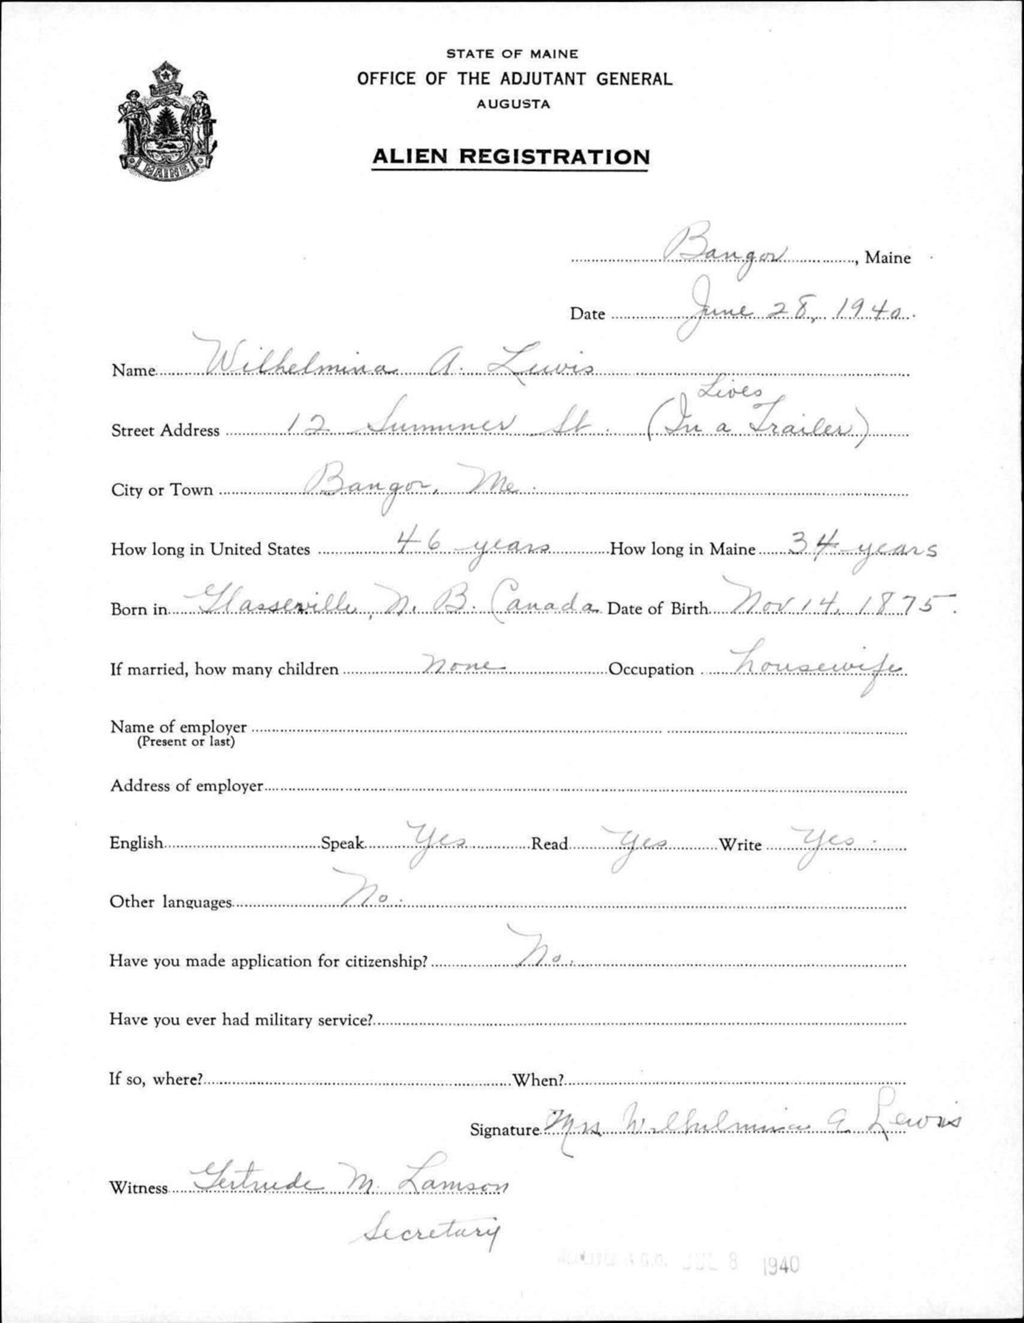 STATE OF MAINE
OFFICE OF THE ADJUTANT GENERAL
AUGUSTA
ALIEN REGISTRATION
MAINE
Bangor, Maine
Date June 28, 1940.
Name Wilhelmina A. Lewis
Lives
Street Address 12 Summer St. (In a Trailer)
City or Town Bangor, Me.
How long in United States 46 years How long in Maine 34 years
Born in Glasseville, N. B. Canada Date of Birth Nov 14, 1875.
If married, how many children none Occupation housewife
Name of employer
(Present or last)
Address of employer
English Speak Yes Read Yes Write Yes.
Other languages No.
Have you made application for citizenship? No.
Have you ever had military service?
If so, where? When?
Signature Mrs Wilhelmina A Lewis
Witness Gertrude M. Lamson
Secretary
A.G.O. JUL 8 1940